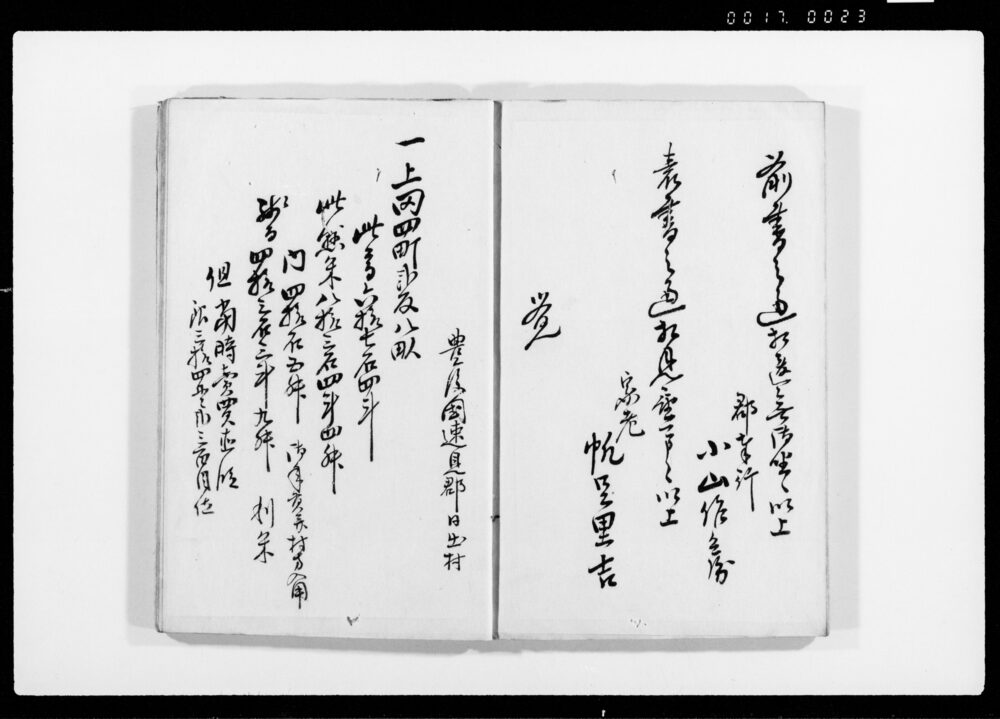 0017. 0023
前書之通相違無御坐候以上
郡奉行
小山作兵衛
表書之通相見置可申候以上
家老
帆足里吉
覚
豊後国速見郡日出村
一上田四町弐反八畝
此高六拾七石四斗
此熊米八拾三石四斗四升
内四拾石五升 御年貢并村方入用
残而四拾三石三斗九升 利米
但当時売買直段